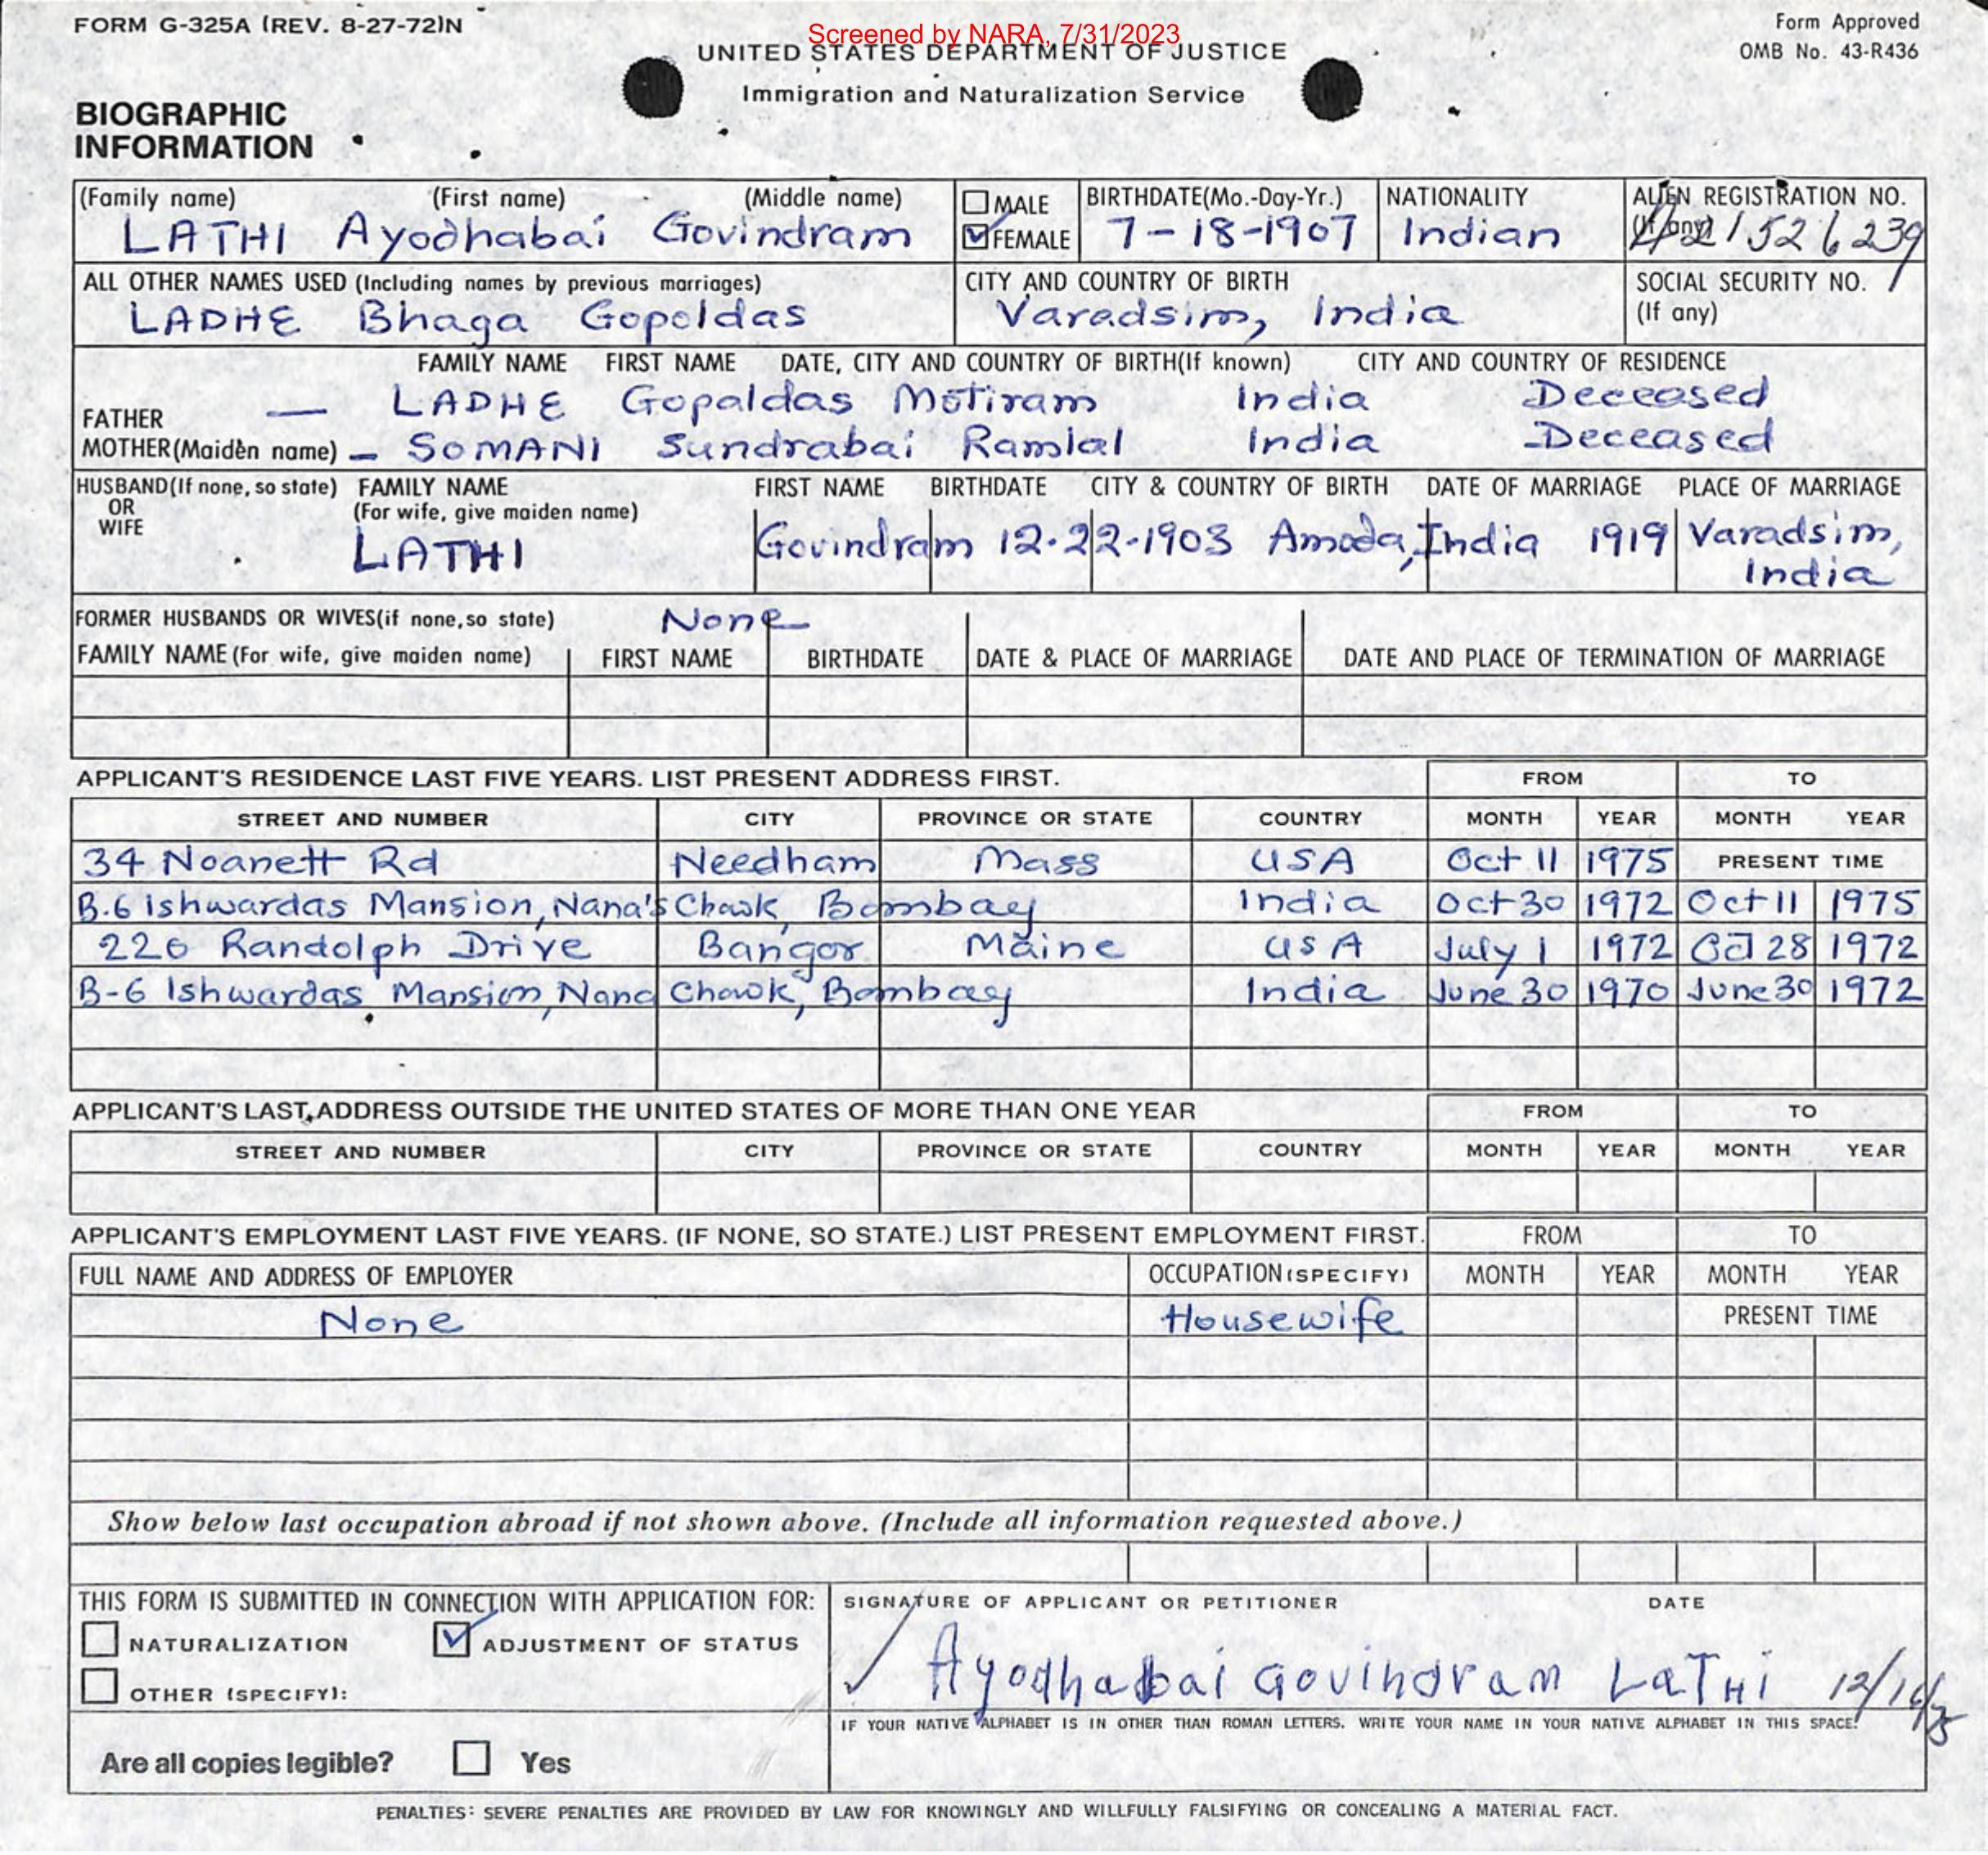 FORM G-325A (REV. 8-27-72)N
Screened by NARA, 7/31/2023
Form Approved
OMB No. 43-R436
UNITED STATES DEPARTMENT OF JUSTICE
Immigration and Naturalization Service
BIOGRAPHIC
INFORMATION
(Family name) (First name) (Middle name) MALE BIRTHDATE(Mo.-Day-Yr.) NATIONALITY ALIEN REGISTRATION NO.
(If any)
LATHI Ayodhabai Govindram FEMALE 7-18-1907 Indian A21526239
ALL OTHER NAMES USED (Including names by previous marriages) CITY AND COUNTRY OF BIRTH SOCIAL SECURITY NO.
(If any)
LADHE Bhaga Gopoldas Varadsim, India
FAMILY NAME FIRST NAME DATE, CITY AND COUNTRY OF BIRTH(If known) CITY AND COUNTRY OF RESIDENCE
FATHER — LADHE Gopaldas Motiram India Deceased
MOTHER(Maiden name) – SOMANI Sundrabai Ramlal India Deceased
HUSBAND(If none, so state) FAMILY NAME FIRST NAME BIRTHDATE CITY & COUNTRY OF BIRTH DATE OF MARRIAGE PLACE OF MARRIAGE
OR (For wife, give maiden name)
WIFE
LATHI Govindram 12-22-1903 Amoda, India 1919 Varadsim,
India
FORMER HUSBANDS OR WIVES(if none,so state) None
FAMILY NAME (For wife, give maiden name) FIRST NAME BIRTHDATE DATE & PLACE OF MARRIAGE DATE AND PLACE OF TERMINATION OF MARRIAGE
APPLICANT'S RESIDENCE LAST FIVE YEARS. LIST PRESENT ADDRESS FIRST. FROM TO
STREET AND NUMBER CITY PROVINCE OR STATE COUNTRY MONTH YEAR MONTH YEAR
34 Noanett Rd Needham Mass USA Oct 11 1975 PRESENT TIME
B.6 Ishwardas Mansion, Nana's Chowk, Bombay India Oct 30 1972 Oct 11 1975
226 Randolph Drive Bangor Maine USA July 1 1972 Oct 28 1972
B-6 Ishwardas Mansion, Nana Chowk, Bombay India June 30 1970 June 30 1972
APPLICANT'S LAST ADDRESS OUTSIDE THE UNITED STATES OF MORE THAN ONE YEAR FROM TO
STREET AND NUMBER CITY PROVINCE OR STATE COUNTRY MONTH YEAR MONTH YEAR
APPLICANT'S EMPLOYMENT LAST FIVE YEARS. (IF NONE, SO STATE.) LIST PRESENT EMPLOYMENT FIRST. FROM TO
FULL NAME AND ADDRESS OF EMPLOYER OCCUPATION (SPECIFY) MONTH YEAR MONTH YEAR
None Housewife PRESENT TIME
Show below last occupation abroad if not shown above. (Include all information requested above.)
THIS FORM IS SUBMITTED IN CONNECTION WITH APPLICATION FOR: SIGNATURE OF APPLICANT OR PETITIONER DATE
NATURALIZATION ADJUSTMENT OF STATUS
OTHER (SPECIFY):
Ayodhabai Govindram LaTHi
IF YOUR NATIVE ALPHABET IS IN OTHER THAN ROMAN LETTERS, WRITE YOUR NAME IN YOUR NATIVE ALPHABET IN THIS SPACE:
Are all copies legible? Yes
PENALTIES: SEVERE PENALTIES ARE PROVIDED BY LAW FOR KNOWINGLY AND WILLFULLY FALSIFYING OR CONCEALING A MATERIAL FACT.